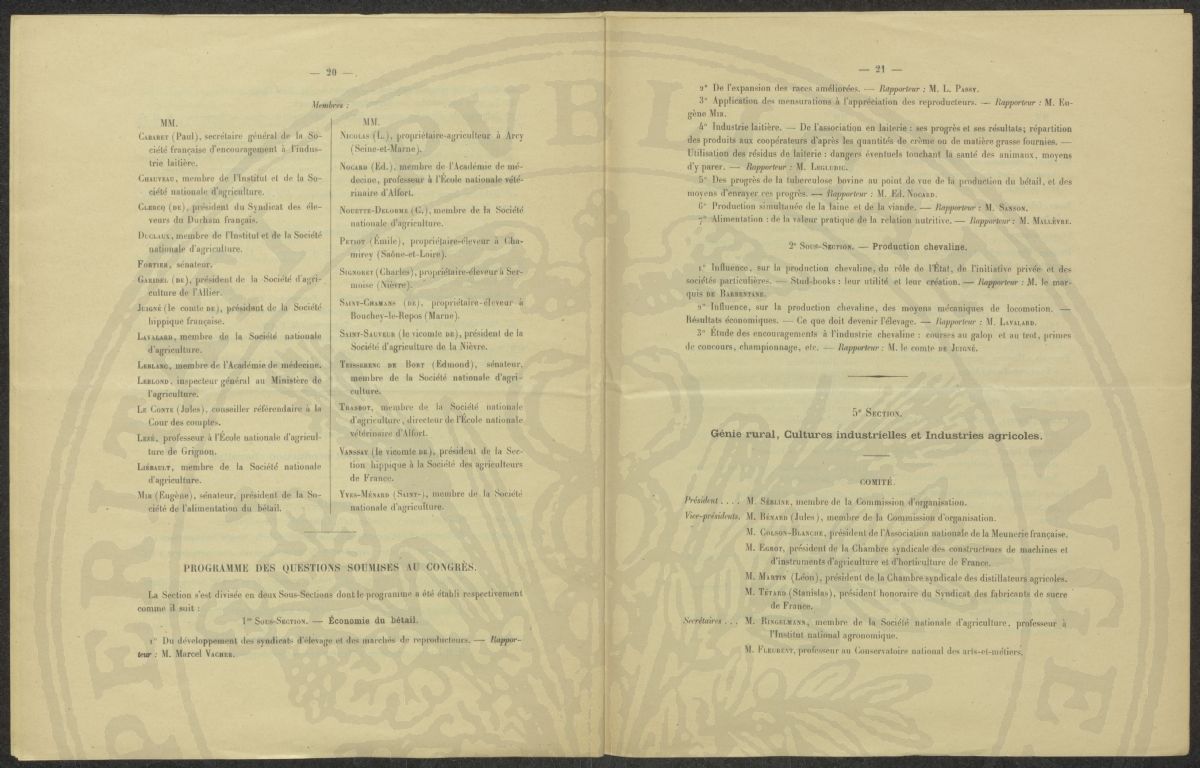 — 20 —
Membres :
MM.
Cabaret (Paul), secrétaire général de la So-
ciété française d'encouragement à l'indus-
trie laitière.
Chauveau, membre de l'Institut et de la So-
ciété nationale d'agriculture.
Clercq (de), président du Syndicat des éle-
veurs du Durham français.
Duclaux, membre de l'Institut et de la Société
nationale d'agriculture.
Fortier, sénateur.
Garidel (de), président de la Société d'agri-
culture de l'Allier.
Juigné (le comte de), président de la Société
hippique française.
Lavalard, membre de la Société nationale
d'agriculture.
Leblanc, membre de l'Académie de médecine.
Leblond, inspecteur général au Ministère de
l'agriculture.
Le Conte (Jules), conseiller référendaire à la
Cour des comptes.
Lezé, professeur à l'École nationale d'agricul-
ture de Grignon.
Liébault, membre de la Société nationale
d'agriculture.
Mir (Eugène), sénateur, président de la So-
ciété de l'alimentation du bétail.
MM.
Nicolas (L.), propriétaire-agriculteur à Arcy
(Seine-et-Marne).
Nocard (Ed.), membre de l'Académie de mé-
decine, professeur à l'École nationale vété-
rinaire d'Alfort.
Nouette-Delorme (C.), membre de la Société
nationale d'agriculture.
Petiot (Émile), propriétaire-éleveur à Cha-
mirey (Saône-et-Loire).
Signoret (Charles), propriétaire-éleveur à Ser-
moise (Nièvre).
Saint-Chamans (de), propriétaire-éleveur à
Bouchey-le-Repos (Marne).
Saint-Sauveur (le vicomte de), président de la
Société d'agriculture de la Nièvre.
Teisserenc de Bort (Edmond), sénateur,
membre de la Société nationale d'agri-
culture.
Trasbot, membre de la Société nationale
d'agriculture, directeur de l'École nationale
vétérinaire d'Alfort.
Vanssay (le vicomte de), président de la Sec-
tion hippique à la Société des agriculteurs
de France.
Yves-Ménard (Saint-), membre de la Société
nationale d'agriculture.
PROGRAMME DES QUESTIONS SOUMISES AU CONGRÈS.
La Section s'est divisée en deux Sous-Sections dont le programme a été établi respectivement
comme il suit :
1re Sous-Section. — Économie du bétail.
1° Du développement des syndicats d'élevage et des marchés de reproducteurs. — Rappor-
teur : M. Marcel Vacher.
— 21 —
2° De l'expansion des races améliorées. — Rapporteur : M. L. Passy.
3° Application des mensurations à l'appréciation des reproducteurs. — Rapporteur : M. Eu-
gène Mir.
4° Industrie laitière. — De l'association en laiterie : ses progrès et ses résultats; répartition
des produits aux coopérateurs d'après les quantités de crème ou de matière grasse fournies. —
Utilisation des résidus de laiterie : dangers éventuels touchant la santé des animaux, moyens
d'y parer. — Rapporteur : M. Legludic.
5° Des progrès de la tuberculose bovine au point de vue de la production du bétail, et des
moyens d'enrayer ces progrès. — Rapporteur : M. Ed. Nocard.
6° Production simultanée de la laine et de la viande. — Rapporteur : M. Sanson.
7° Alimentation : de la valeur pratique de la relation nutritive. — Rapporteur : M. Mallèvre.
2e Sous-Section. — Production chevaline.
1° Influence, sur la production chevaline, du rôle de l'État, de l'initiative privée et des
sociétés particulières. — Stud-books : leur utilité et leur création. — Rapporteur : M. le mar-
quis de Barbentane.
2° Influence, sur la production chevaline, des moyens mécaniques de locomotion. —
Résultats économiques. — Ce que doit devenir l'élevage. — Rapporteur : M. Lavalard.
3° Étude des encouragements à l'industrie chevaline : courses au galop et au trot, primes
de concours, championnage, etc. — Rapporteur : M. le comte de Juigné.
5e Section.
Génie rural, Cultures industrielles et Industries agricoles.
COMITÉ.
Président . . . . M. Sébline, membre de la Commission d'organisation.
Vice-présidents. M. Bénard (Jules), membre de la Commission d'organisation.
M. Colson-Blanche, président de l'Association nationale de la Meunerie française.
M. Egrot, président de la Chambre syndicale des constructeurs de machines et
d'instruments d'agriculture et d'horticulture de France.
M. Martin (Léon), président de la Chambre syndicale des distillateurs agricoles.
M. Tétard (Stanislas), président honoraire du Syndicat des fabricants de sucre
de France.
Secrétaires . . . M. Ringelmann, membre de la Société nationale d'agriculture, professeur à
l'Institut national agronomique.
M. Fleurent, professeur au Conservatoire national des arts-et-métiers.